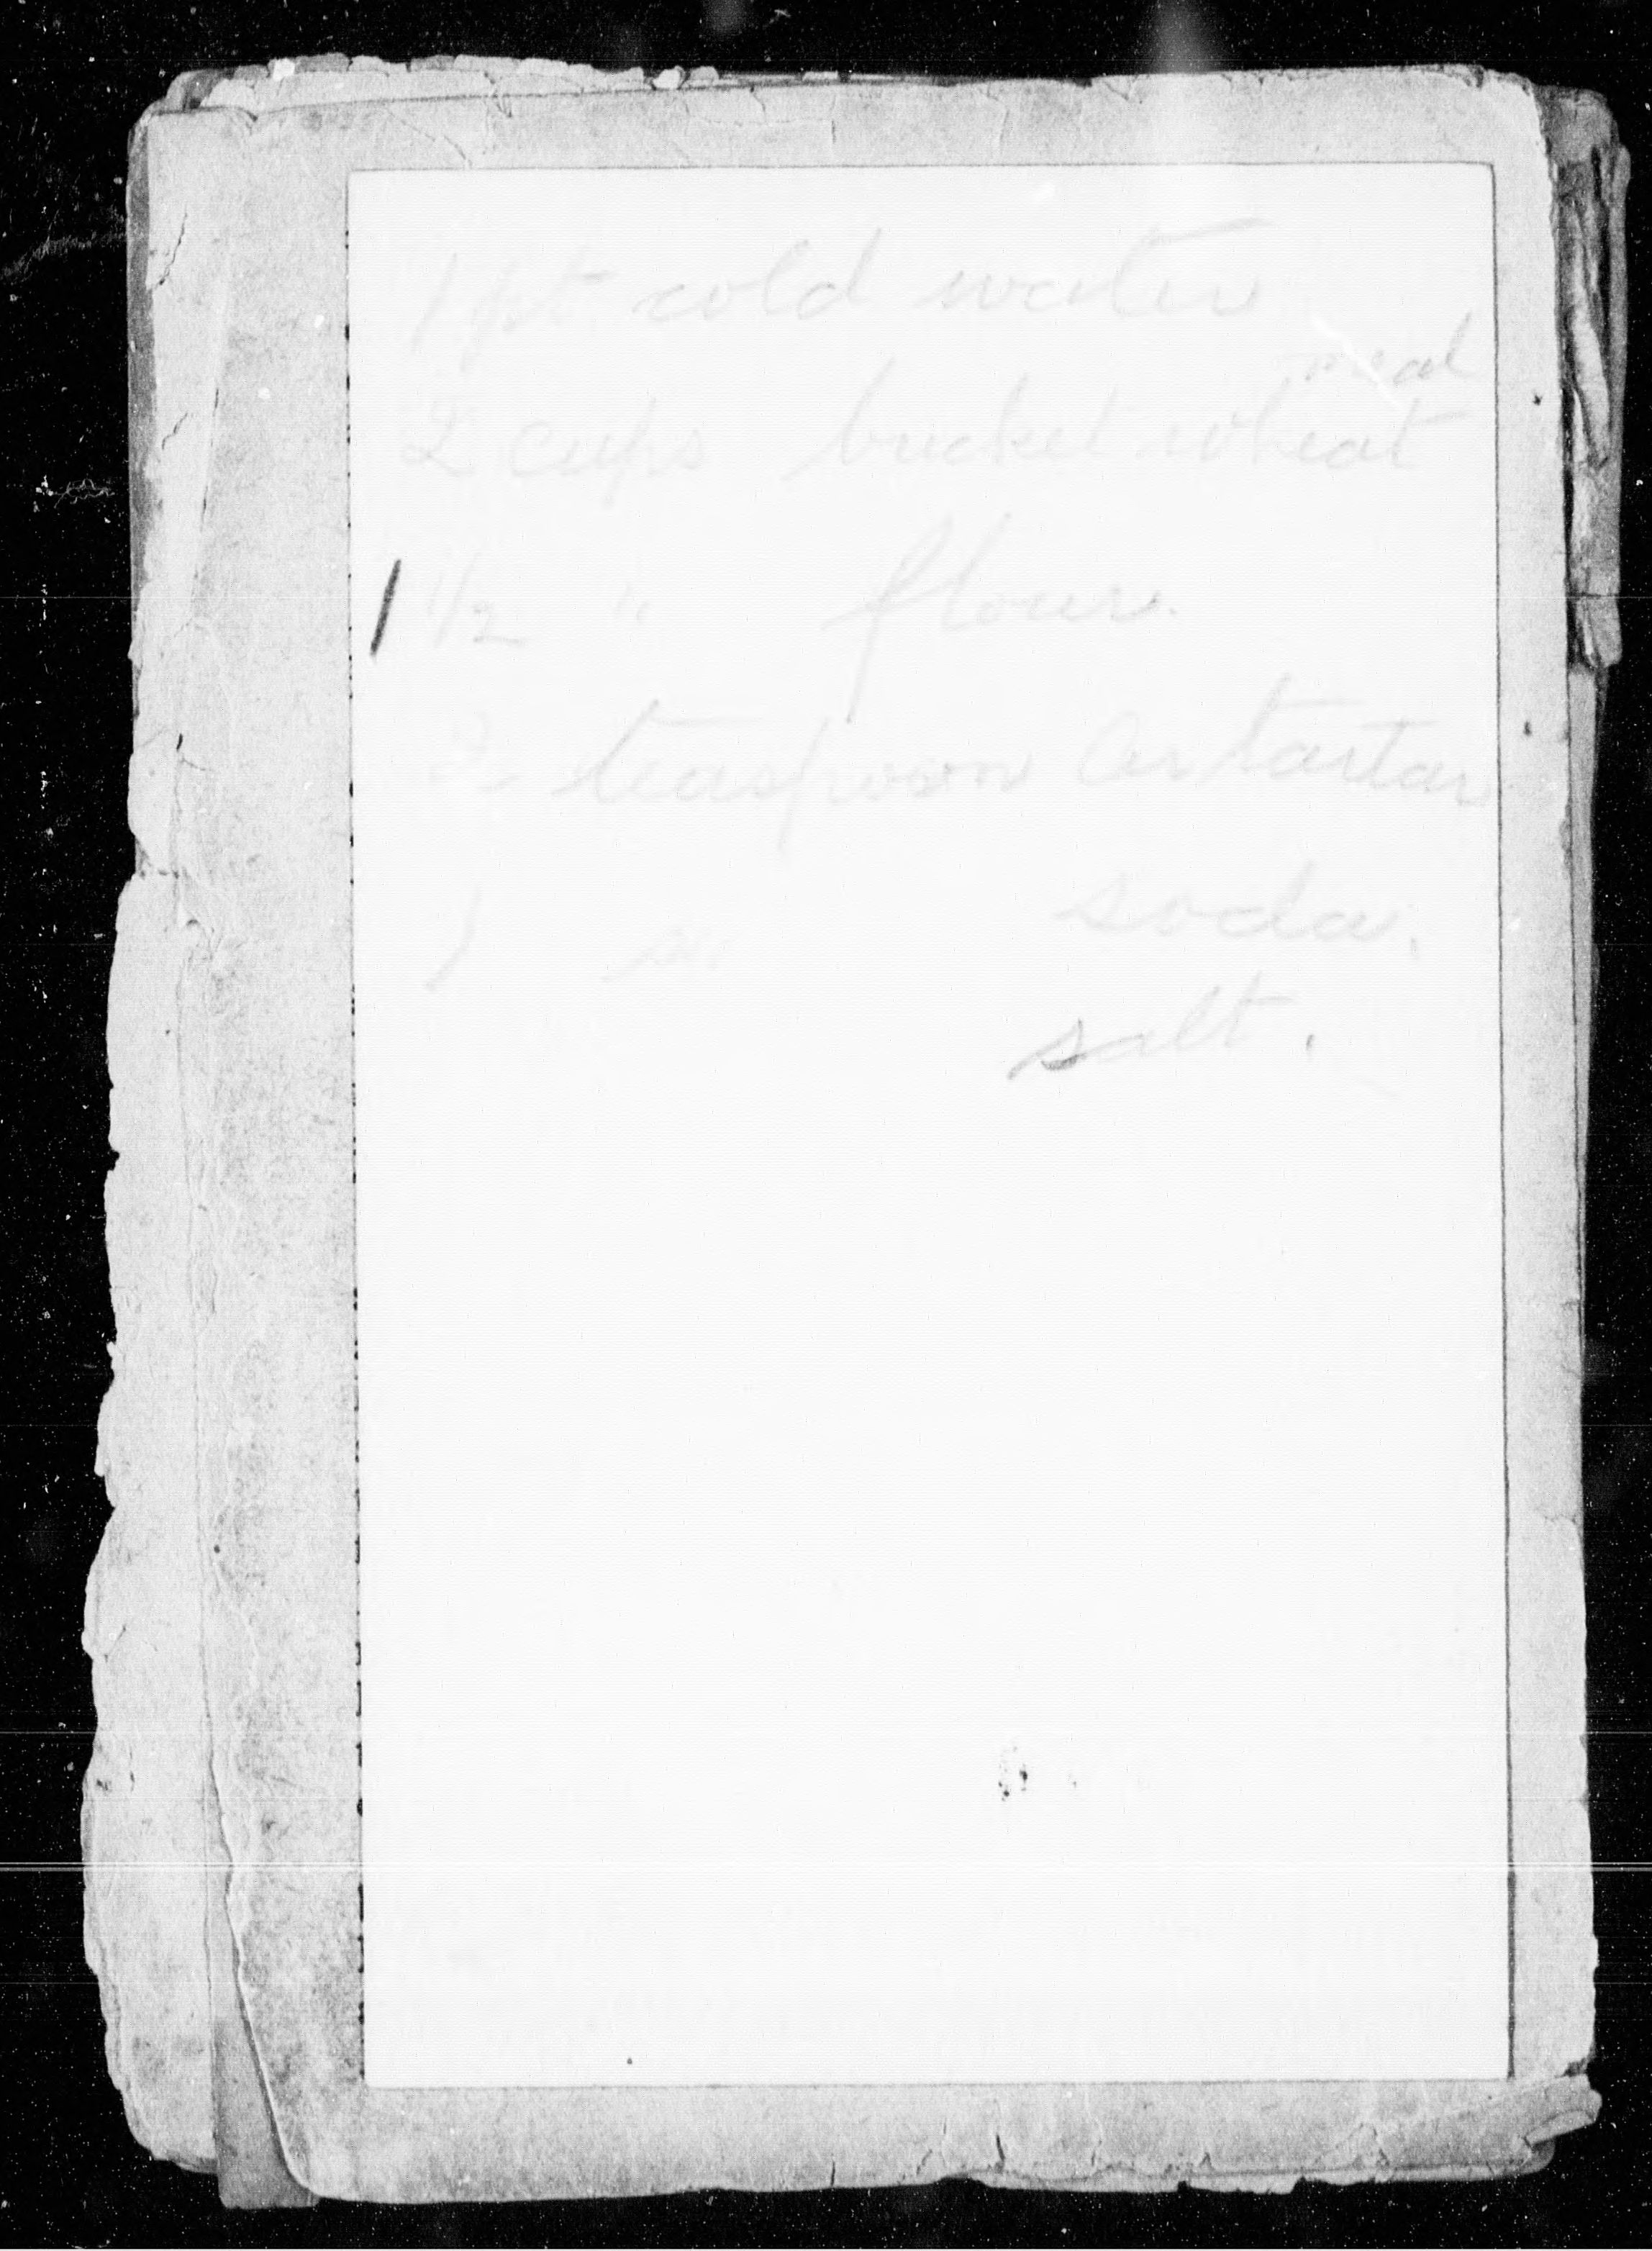 1 pt cold water
meal
2 cups bucket wheat
1 1/2 " flour.
2 teaspoon Cr tartar
1 " soda.
salt.